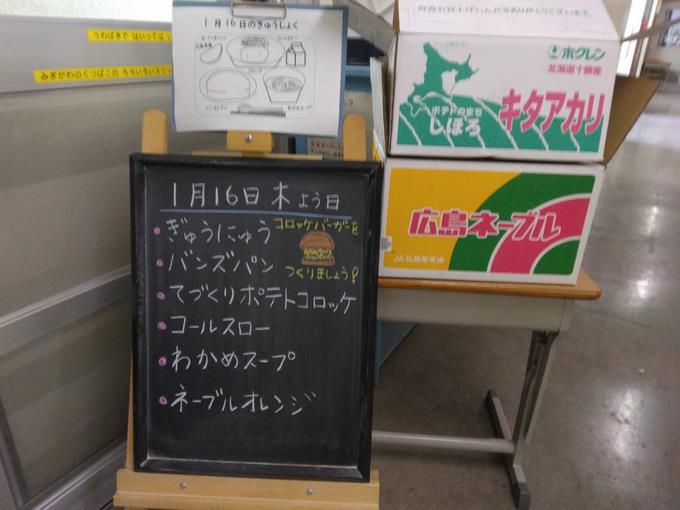 うわばきで はいっては い
みぎがわのくつばこの ちゃいろいスリッ
1月16日のきゅうしょく
わかめスープ
1月16日 木よう日
ぎゅうにゅう
コロッケバーガーを
つくりましょう!
バンズパン
てづくりポテトコロッケ
コールスロー
わかめスープ
ネーブルオレンジ
ホクレン
北海道十勝産
ポテトのまち
しほろ
キタアカリ
広島ネーブル